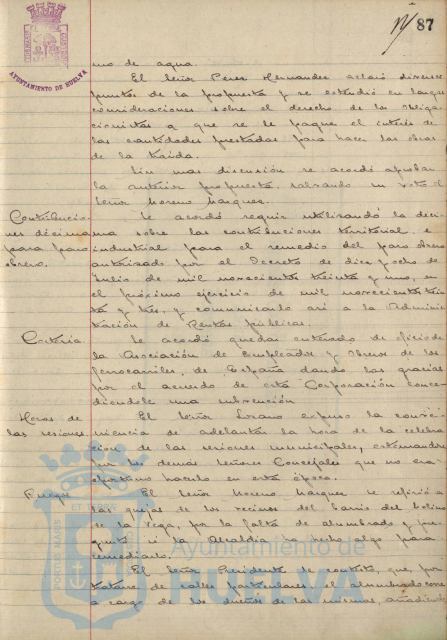 87
AYUNTAMIENTO DE HUELVA
mo de agua.
El Señor Perez Hernandez aclaró diversos
puntos de la propuesta y se extendió en largas
consideraciones sobre el derecho de los obliga-
cionistas a que se le pague el interés de
las cantidades prestadas para hacer las obras
de la traida.
Sin mas discusión se acordó aprobar
la anterior propuesta, salvando su voto el
Señor Moreno Marquez.
Contribucio-
nes décima
para paro
obrero.
Se acordó seguir utilizando la deci-
ma sobre las contribuciones territorial e
industrial para el remedio del paro obrero
autorizado por el Decreto de diez y ocho de
Julio de mil novecientos treinta y uno, en
el próximo ejercicio de mil novecientos trein-
ta y tres, y comunicarlo asi a la Adminis-
tración de Rentas públicas.
Se acordó quedar enterado de oficio de
la Asociación de Empleados y Obreros de los
ferrocarriles, de España dando las gracias
por el acuerdo de esta Corporación conce-
diendole una subvención
Horas de
las sesiones.
El Señor Lozano expuso la conve-
niencia de adelantar la hora de la celebra-
ción de las sesiones municipales, estimandose
por los demas Señores Concejales que no era
oportuno hacerlo en esta época.
Ruegos
El Señor Moreno Marquez se refirió a
las quejas de los vecinos del barrio del Molino
de la Vega, por la falta de alumbrado y pre-
guntó si la Alcaldia ha hecho algo para
remediarlo.
El Señor Presidente le contestó que, por
tratarse de calles particulares el alumbrado corre
a cargo de los dueños de las mismas, añadiendo
Ayuntamiento de
HUELVA